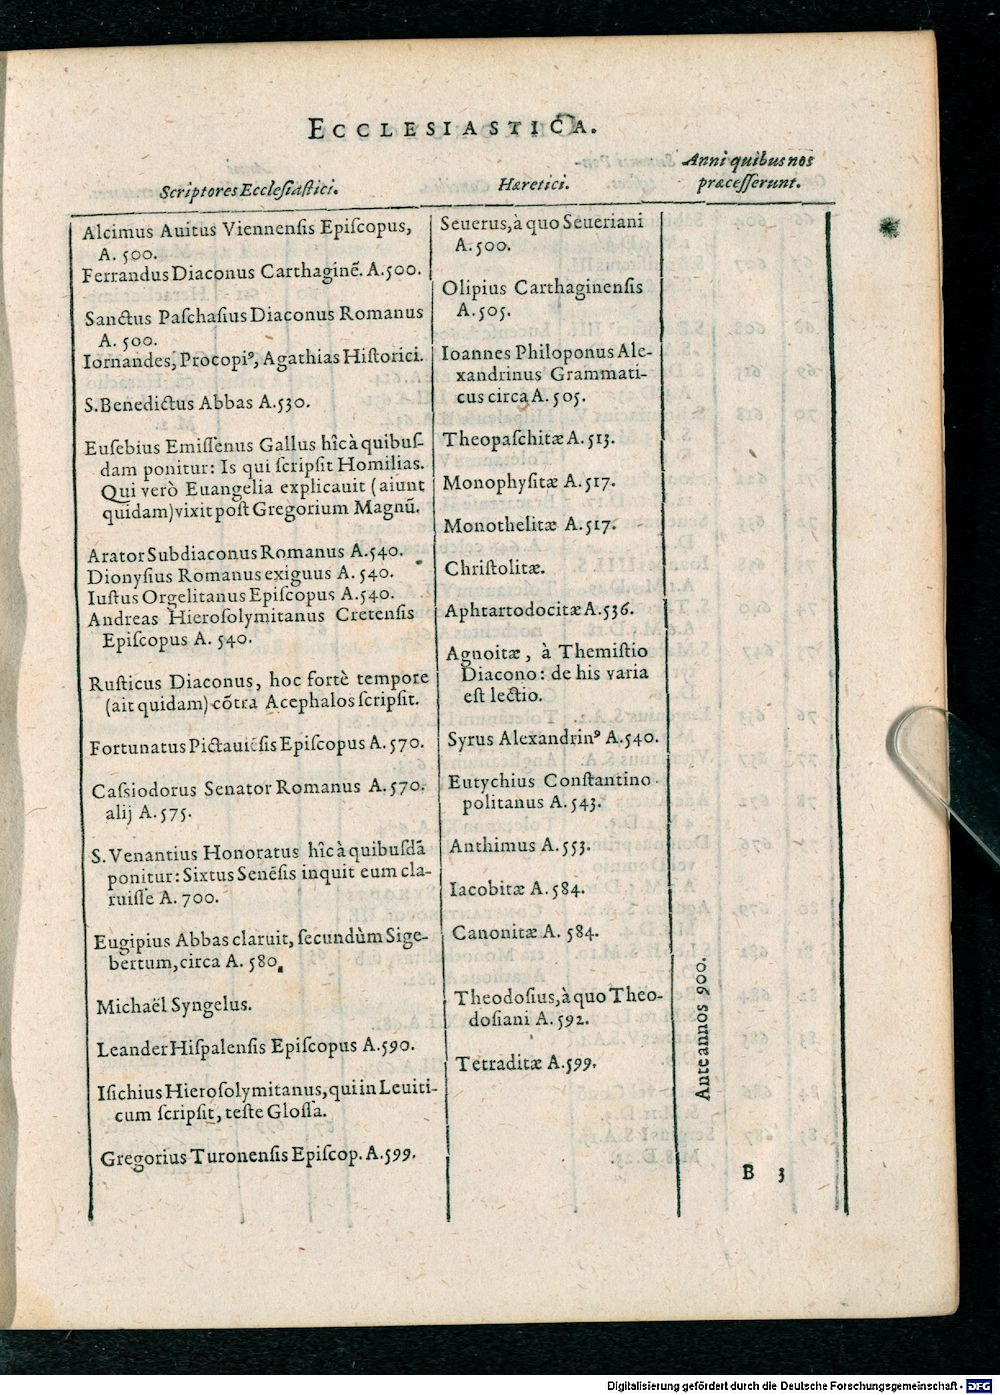 ECCLESIASTICA.
Scriptores Ecclesiastici.
Alcimus Auitus Viennensis Episcopus,
A. 500.
Ferrandus Diaconus Carthaginẽ. A.500.
Sanctus Paschasius Diaconus Romanus
A. 500.
Iornandes, Procopiꝰ, Agathias Historici.
S.Benedictus Abbas A.530.
Eusebius Emissenus Gallus hîc à quibus-
dam ponitur: Is qui scripsit Homilias.
Qui verò Euangelia explicauit (aiunt
quidam) vixit post Gregorium Magnũ.
Arator Subdiaconus Romanus A.540.
Dionysius Romanus exiguus A. 540.
Iustus Orgelitanus Episcopus A.540.
Andreas Hierosolymitanus Cretensis
Episcopus A. 540.
Rusticus Diaconus, hoc fortè tempore
(ait quidam) cõtra Acephalos scripsit.
Fortunatus Pictauiẽsis Episcopus A.570.
Cassiodorus Senator Romanus A.570.
alij A.575.
S. Venantius Honoratus hîc à quibusdã
ponitur: Sixtus Senẽsis inquit eum cla-
ruisse A. 700.
Eugipius Abbas claruit, secundùm Sige-
bertum, circa A. 580.
Michaël Syngelus.
Leander Hispalensis Episcopus A.590.
Isichius Hierosolymitanus, qui in Leuiti-
cum scripsit, teste Glossa.
Gregorius Turonensis Episcop. A.599.
Hæretici.
Seuerus, à quo Seueriani
A.500.
Olipius Carthaginensis
A.505.
Ioannes Philoponus Ale-
xandrinus Grammati-
cus circa A. 505.
Theopaschitæ A. 513.
Monophysitæ A.517.
Monothelitæ A.517.
Christolitæ.
Aphtartodocitæ A.536.
Agnoitæ, à Themistio
Diacono: de his varia
est lectio.
Syrus Alexandrinꝰ A.540.
Eutychius Constantino-
politanus A.543.
Anthimus A.553.
Iacobitæ A.584.
Canonitæ A. 584.
Theodosius, à quo Theo-
dosiani A.592.
Tetraditæ A.599.
Anni quibus nos
præcesserunt.
Ante annos 900.
B 3
Digitalisierung gefördert durch die Deutsche Forschungsgemeinschaft - DFG